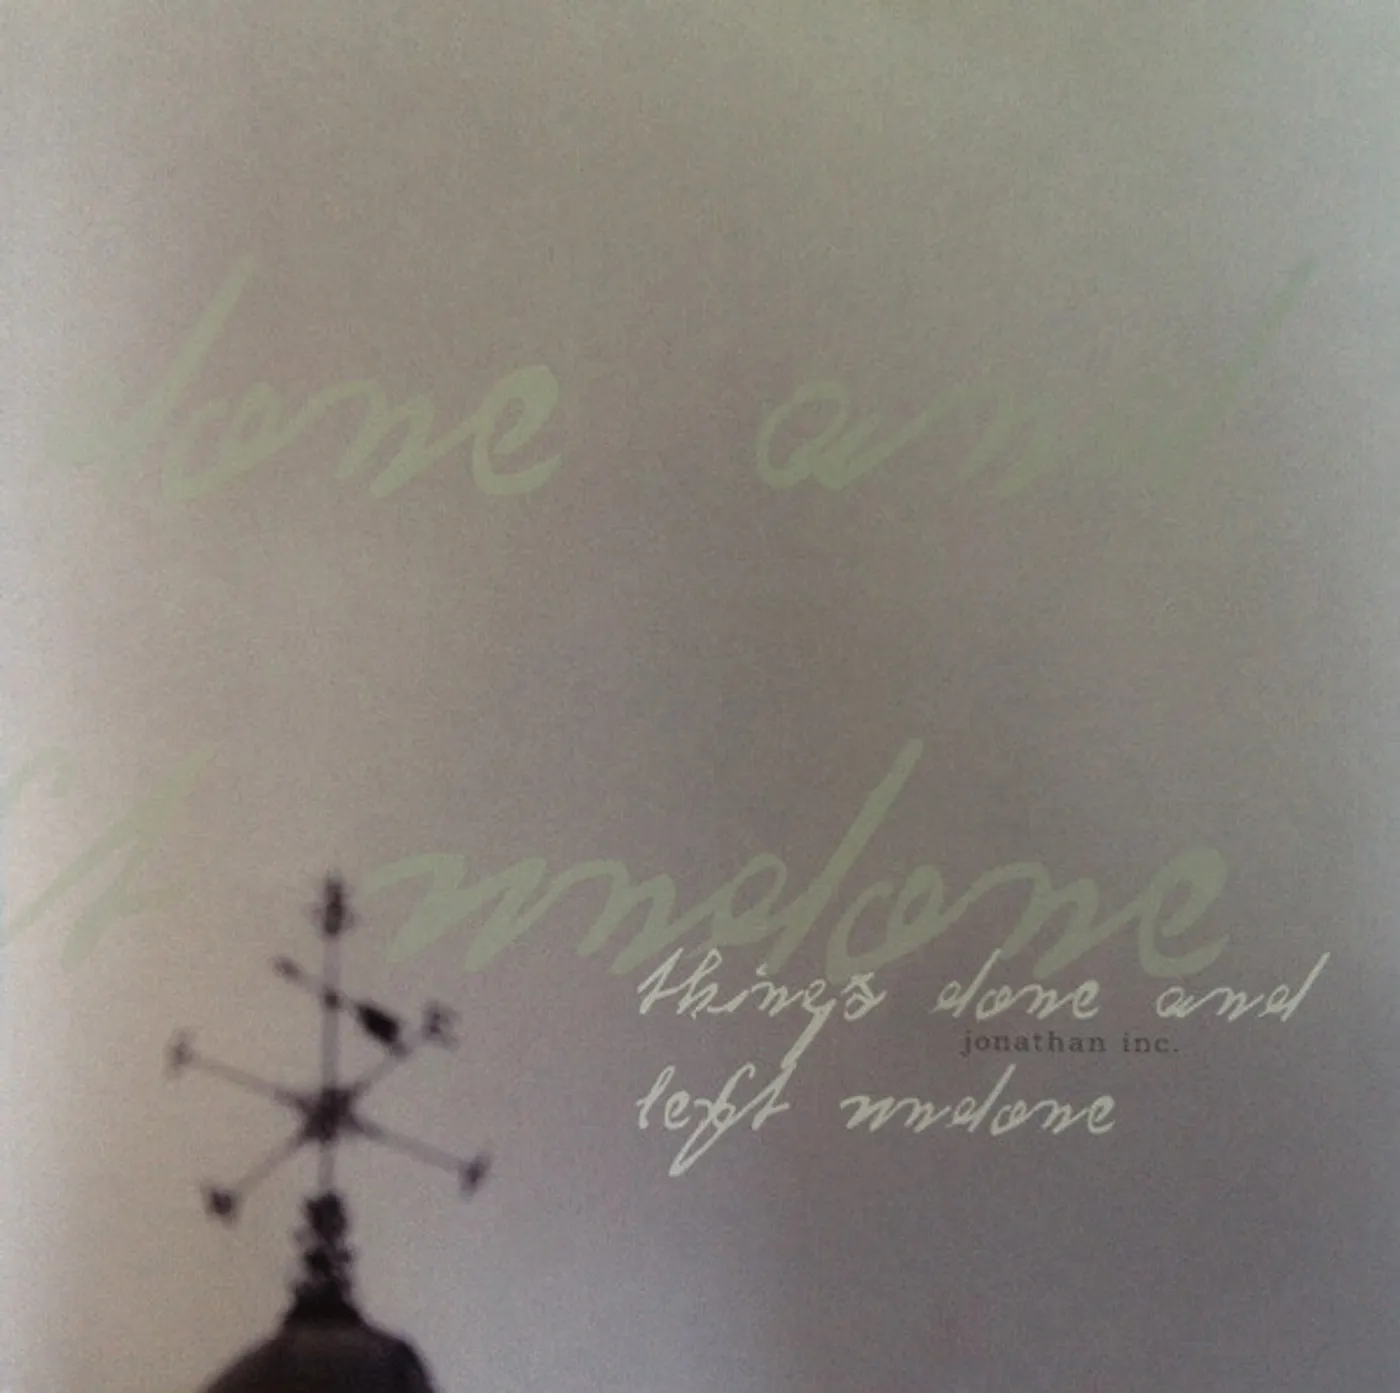 done and
t undone
things done and
jonathan inc.
left undone